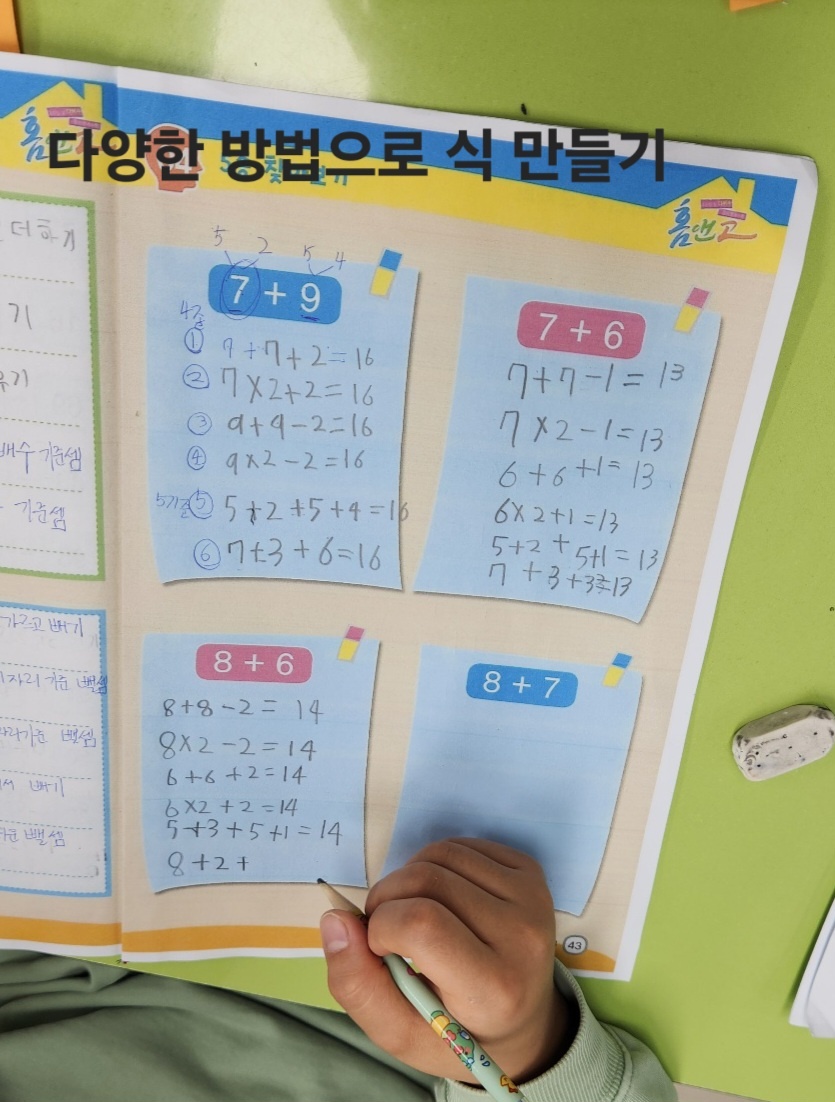 다양한 방법으로 식 만들기
홈앤고
더하기
기
기
배수 기준셈
기준셈
가르고 빼기
자리 기준 뺄셈
기준 뺄셈
서 빼기
뺄셈
5 2 5 4
7 + 9
① 9+7+2=16
② 7×2+2=16
③ 9+9-2=16
④ 9×2-2=16
⑤ 5+2+5+4=16
⑥ 7+3+6=16
7 + 6
7+7-1=13
7×2-1=13
6+6+1=13
6×2+1=13
5+2+5+1=13
7+3+3=13
8 + 6
8+8-2=14
8×2-2=14
6+6+2=14
6×2+2=14
5+3+5+1=14
8+2+
8 + 7
43